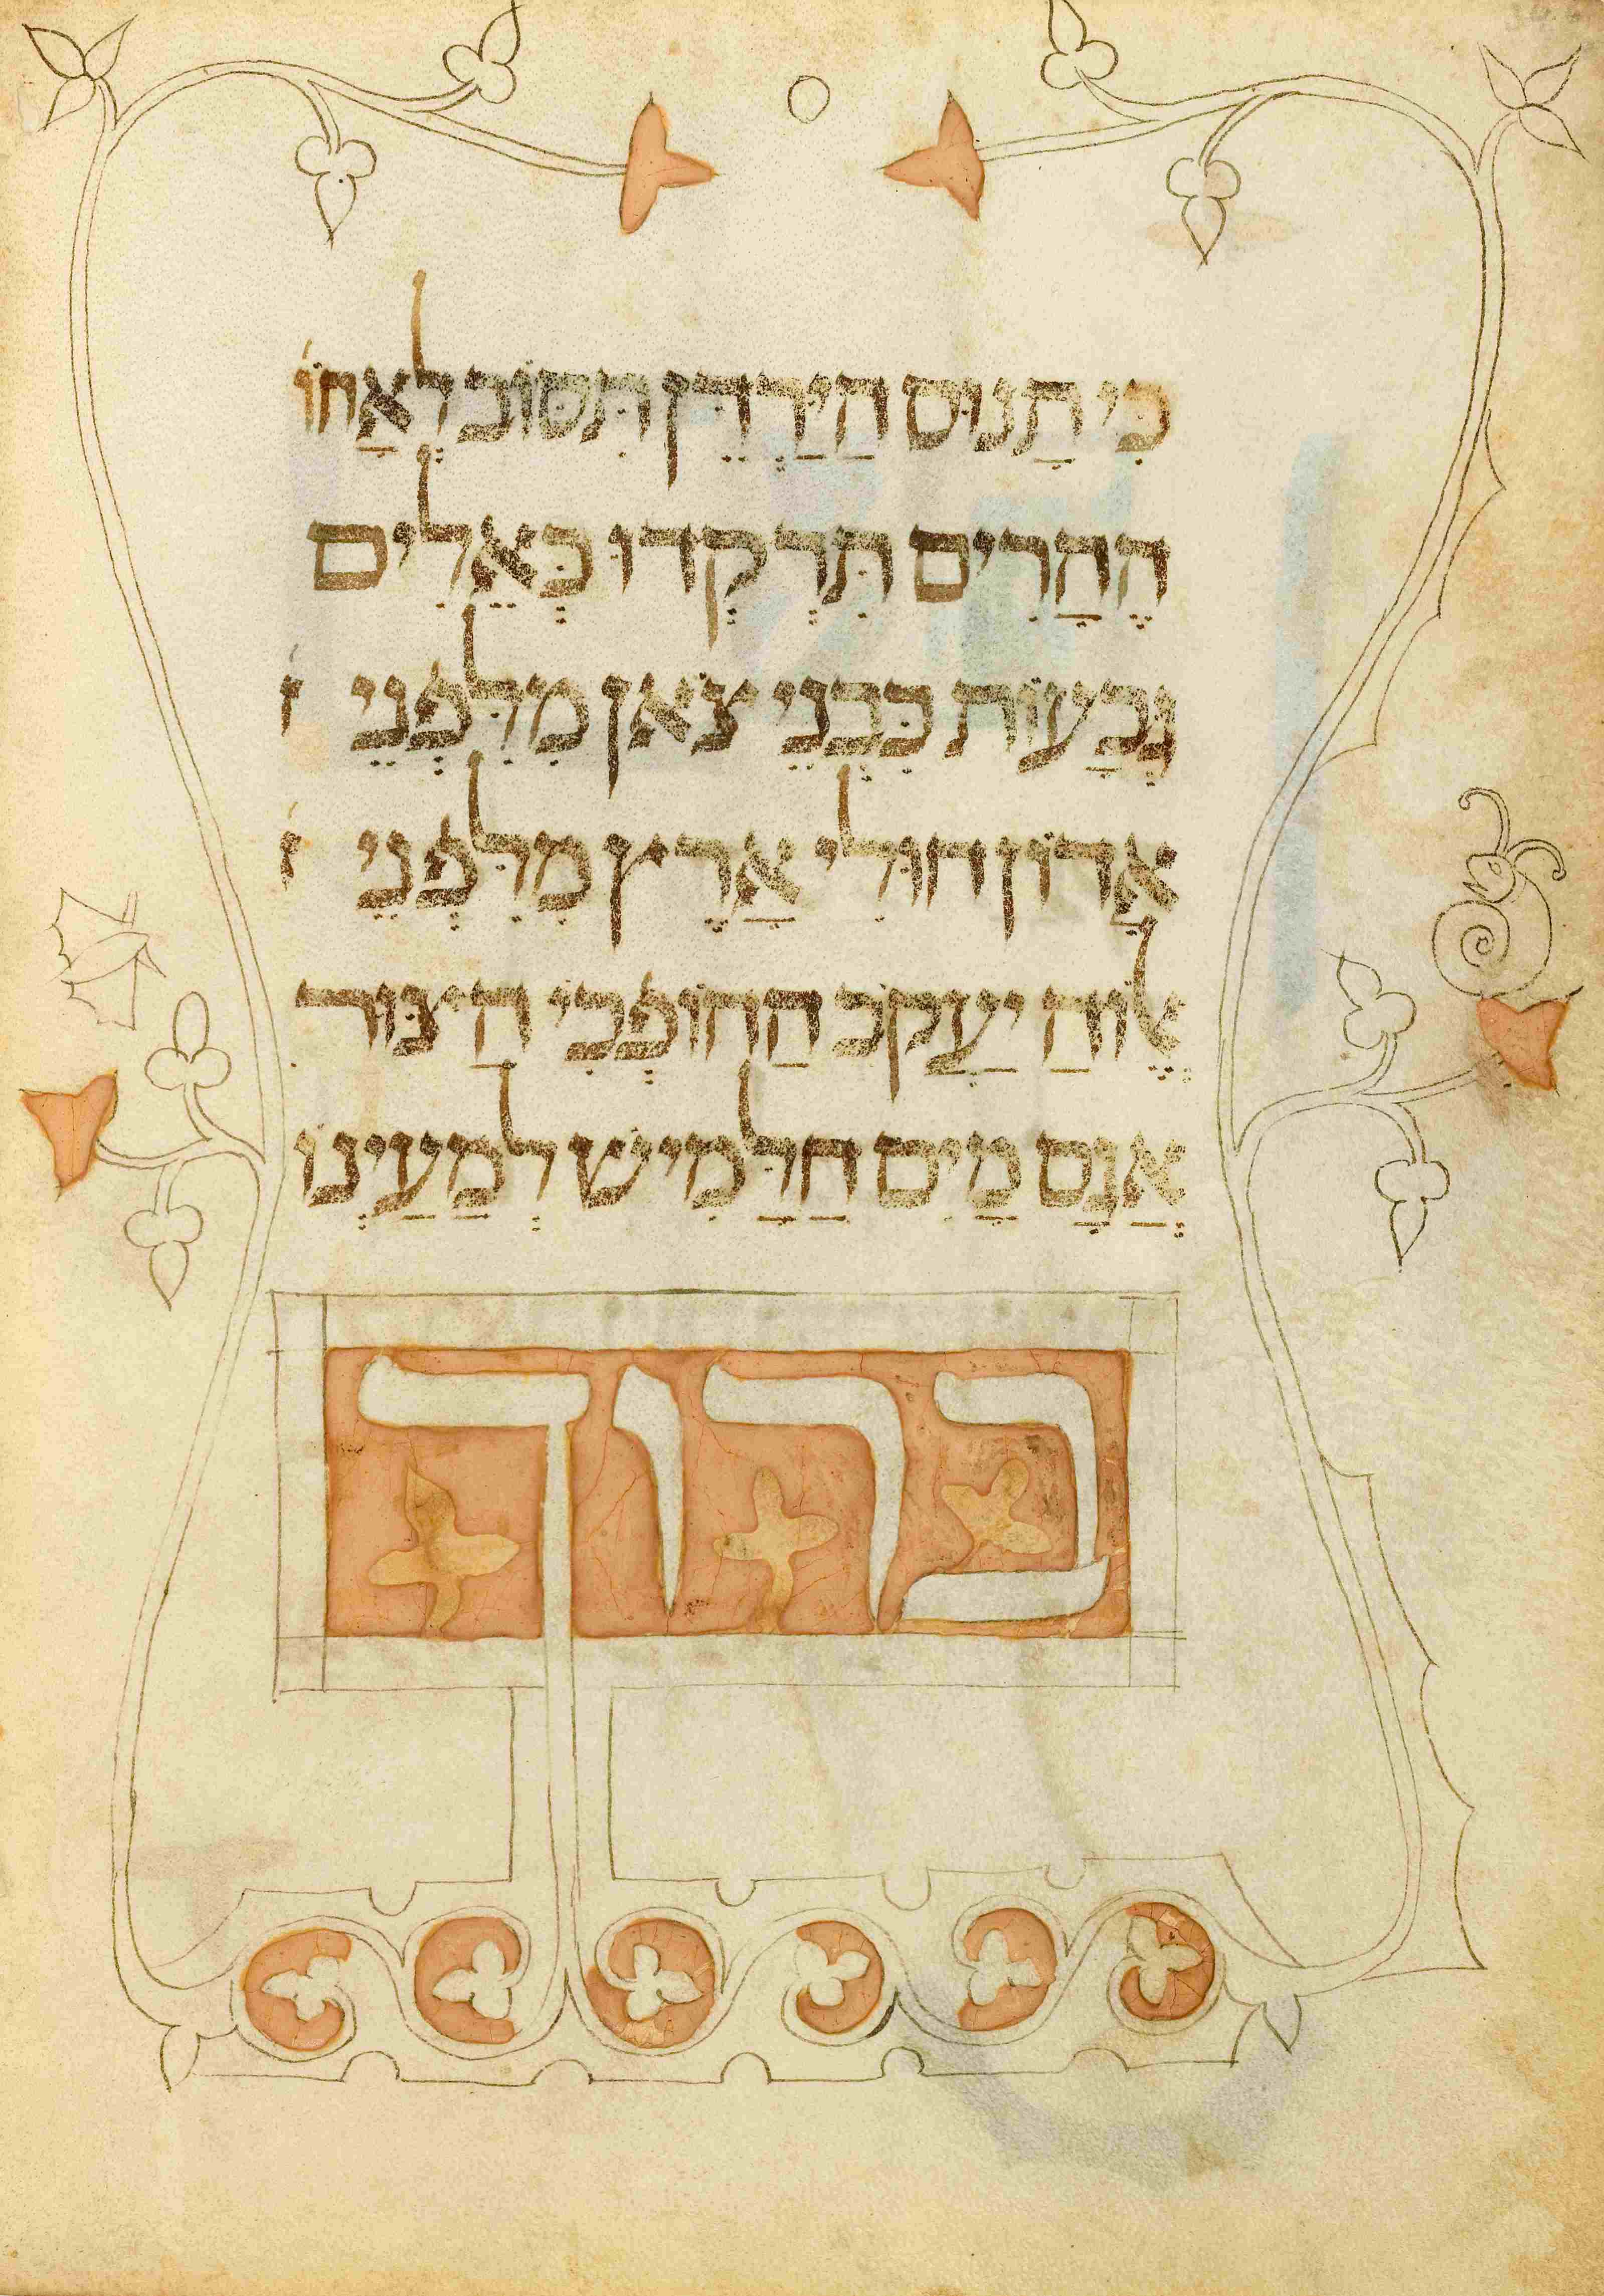 כִּי תָנוּס הַיַּרְדֵּן תִּסּוֹב לְאָחוֹ
הֶהָרִים תִּרְקְדוּ כְּאֵלִים
גְּבָעוֹת כִּבְנֵי צֹאן מִלִּפְנֵי
אָדוֹן חוּלִי אָרֶץ מִלִּפְנֵי
אֱלוֹהַּ יַעֲקֹב הַהוֹפְכִי הַצּוּר
אֲגַם מָיִם חַלָּמִישׁ לְמַעְיְנוֹ
ברוך